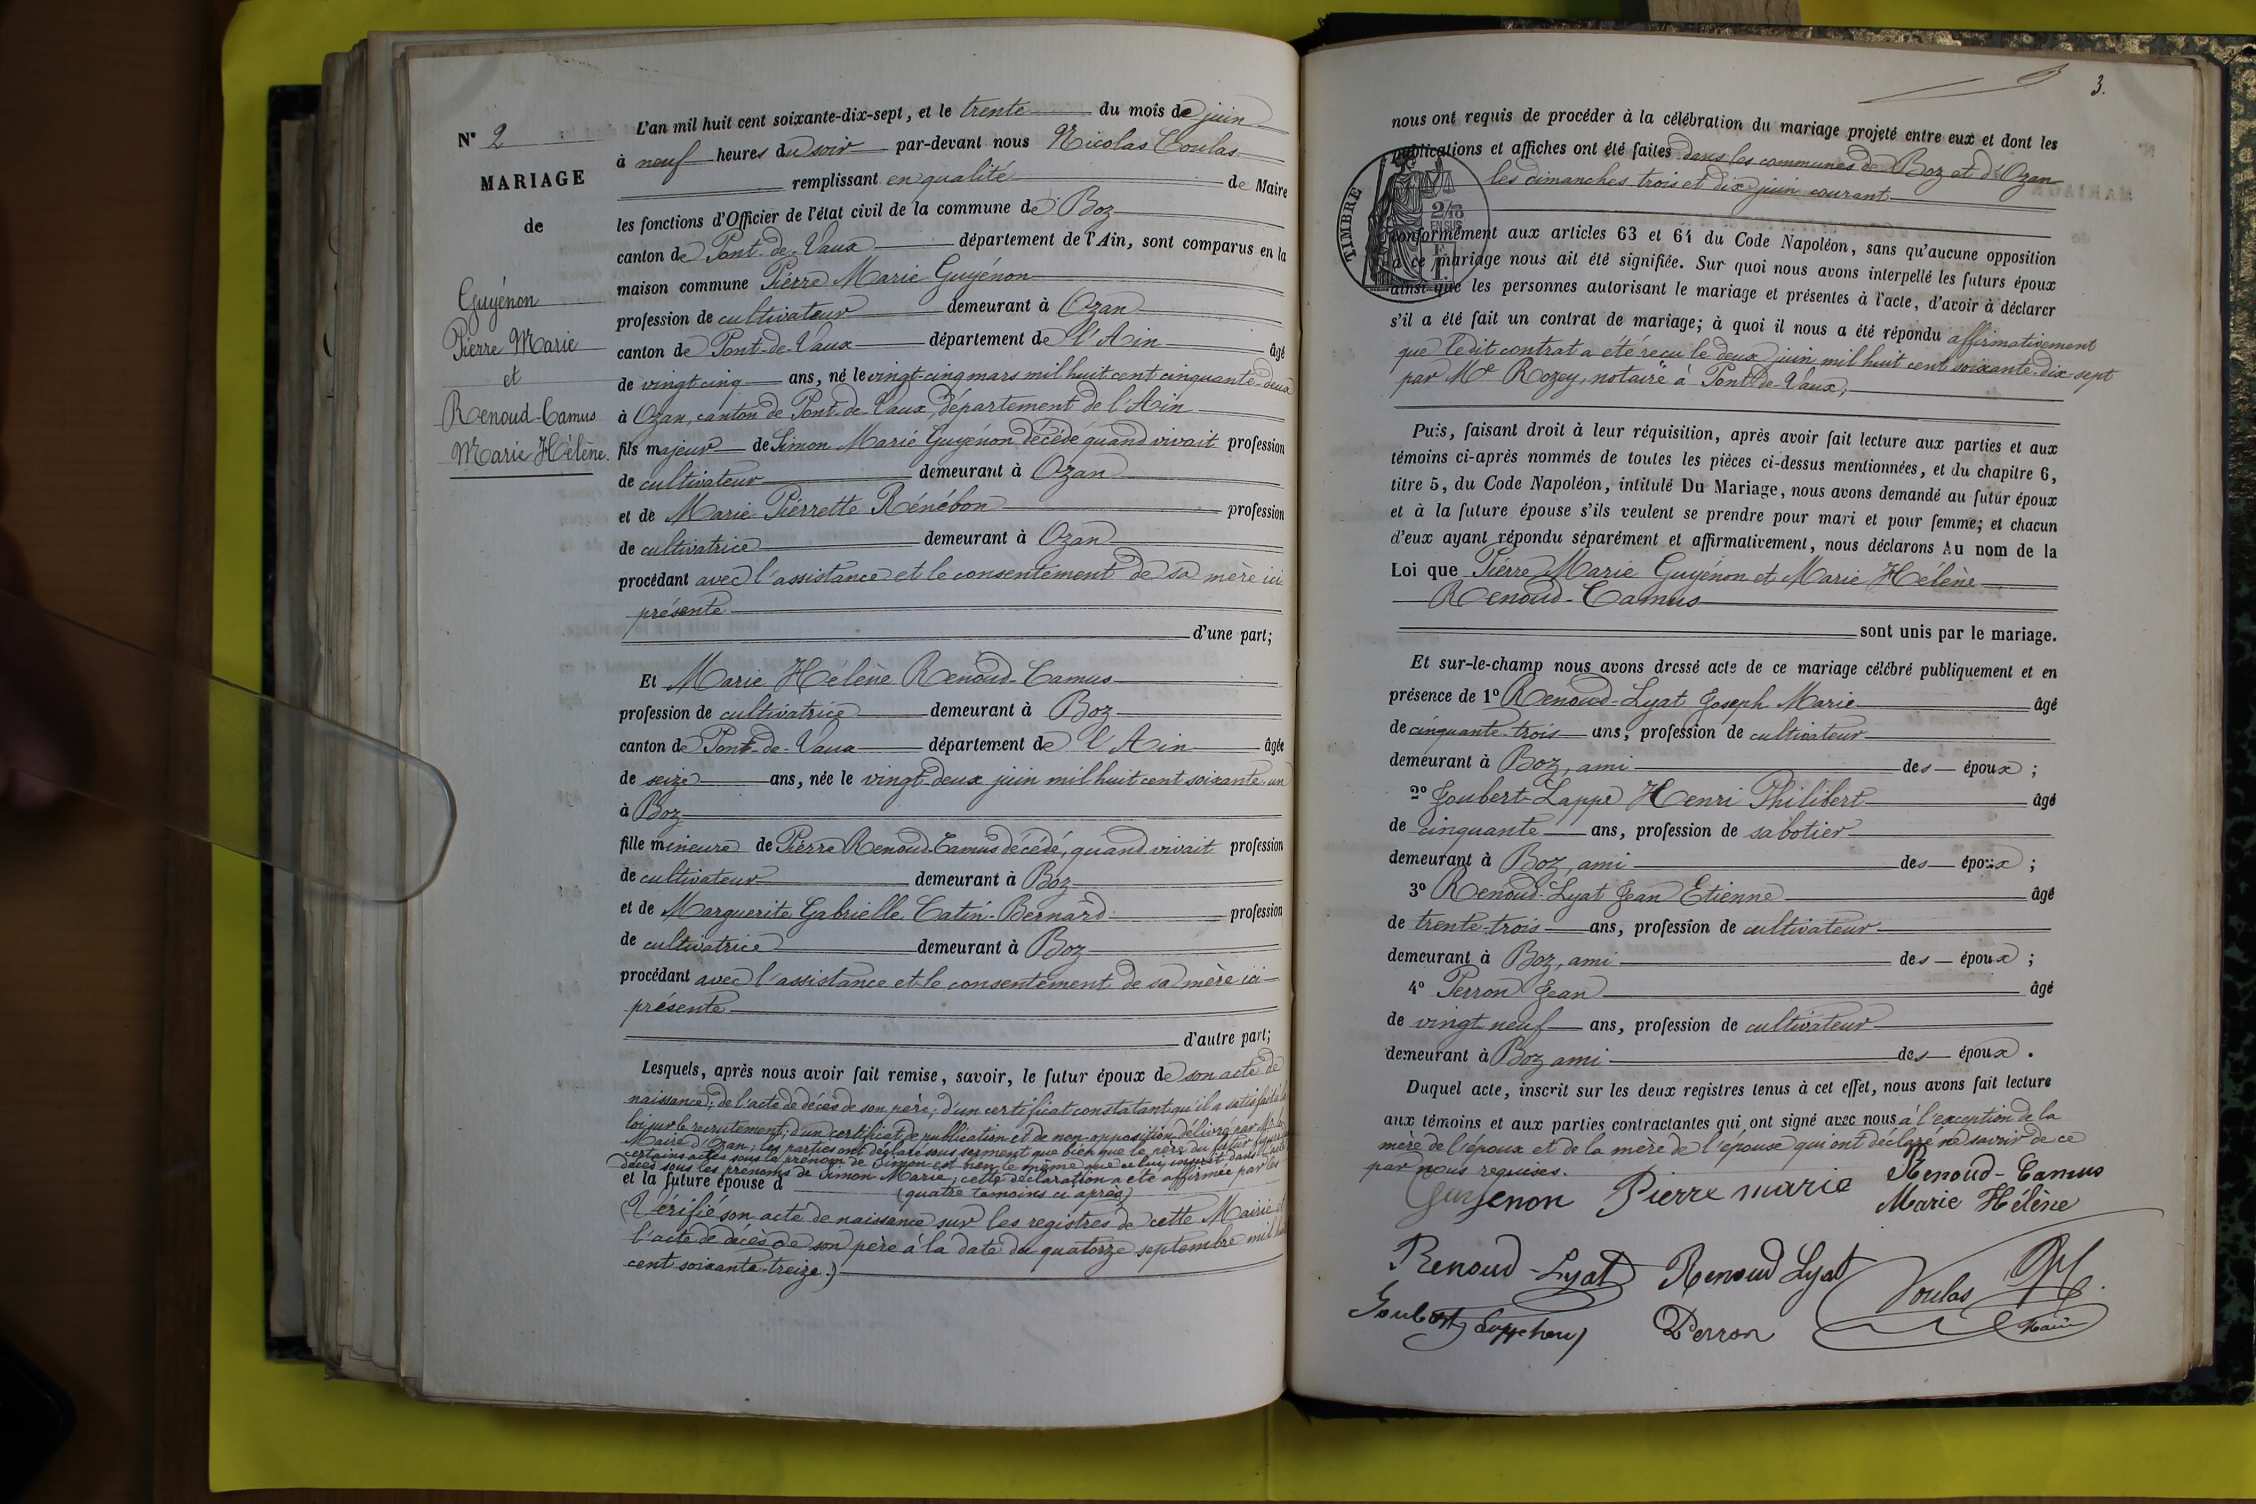 N° 2
MARIAGE
de
Guyénon
Pierre Marie
et
Renoud-Camus
Marie Hélène.
L'an mil huit cent soixante-dix-sept, et le trente du mois de juin
à neuf heures du soir par-devant nous Nicolas
remplissant en qualité de Maire
les fonctions d'Officier de l'état civil de la commune de Boz
canton de Pont-de-Vaux département de l'Ain, sont comparus en la
maison commune Pierre Marie Guyénon
profession de cultivateur demeurant à Ozan
canton de Pont-de-Vaux département de l'Ain âgé
de vingt cinq ans, né le vingt-cinq mars mil huit cent cinquante-deux
à Ozan, canton de Pont-de-Vaux, département de l'Ain
fils majeur de Simon Marie Guyénon décédé quand vivait profession
de cultivateur demeurant à Ozan
et de Marie Pierrette Rénébon profession
de cultivatrice demeurant à Ozan
procédant avec l'assistance et le consentement de sa mère ici
présente
d'une part;
Et Marie Hélène Renoud-Camus
profession de cultivatrice demeurant à Boz
canton de Pont-de-Vaux département de l'Ain âgée
de seize ans, née le vingt-deux juin mil huit cent soixante-un
à Boz
fille mineure de Pierre Renoud-Camus décédé, quand vivait profession
de cultivateur demeurant à Boz
et de Marguerite Gabrielle Catin-Bernard profession
de cultivatrice demeurant à Boz
procédant avec l'assistance et le consentement de sa mère ici
présente
d'autre part;
Lesquels, après nous avoir fait remise, savoir, le futur époux de son acte de
naissance; de l'acte de décès de son père; d'un certificat constatant qu'il a satisfait à la
loi sur le recrutement; d'un certificat de publication et de non-opposition délivré par Mr le
Maire d'Ozan; les parties ont déclaré sous serment que bien que le père du futur figure
certains actes sous le prénom de Simon est bien le même que celui inscrit dans l'acte
décès sous les prénoms de Simon Marie, cette déclaration a été affirmée par les
et la future épouse d (quatre témoins ci après)
(Vérifié son acte de naissance sur les registres de cette Mairie et
l'acte de décès de son père à la date du quatorze septembre mil huit
cent soixante-treize.)
3.
nous ont requis de procéder à la célébration du mariage projeté entre eux et dont les
publications et affiches ont été faites dans les communes de Boz et d'Ozan
les dimanches trois et dix juin courant
TIMBRE
2/10
EN SUS
conformément aux articles 63 et 64 du Code Napoléon, sans qu'aucune opposition
à ce mariage nous ait été signifiée. Sur quoi nous avons interpellé les futurs époux
ainsi que les personnes autorisant le mariage et présentes à l'acte, d'avoir à déclarer
s'il a été fait un contrat de mariage; à quoi il nous a été répondu affirmativement
que ledit contrat a été reçu le deux juin mil huit cent soixante-dix-sept
par Me Rozey, notaire à Pont-de-Vaux;
Puis, faisant droit à leur réquisition, après avoir fait lecture aux parties et aux
témoins ci-après nommés de toutes les pièces ci-dessus mentionnées, et du chapitre 6,
titre 5, du Code Napoléon, intitulé Du Mariage, nous avons demandé au futur époux
et à la future épouse s'ils veulent se prendre pour mari et pour femme; et chacun
d'eux ayant répondu séparément et affirmativement, nous déclarons Au nom de la
Loi que Pierre Marie Guyénon et Marie Hélène
Renoud-Camus
sont unis par le mariage.
Et sur-le-champ nous avons dressé acte de ce mariage célébré publiquement et en
présence de 1° Renoud-Lyat Joseph Marie âgé
de cinquante-trois ans, profession de cultivateur
demeurant à Boz, ami des époux;
2° Joubert-Lappe Henri Philibert âgé
de cinquante ans, profession de sabotier
demeurant à Boz, ami des époux;
3° Renoud-Lyat Jean Etienne âgé
de trente-trois ans, profession de cultivateur
demeurant à Boz, ami des époux;
4° Perron Jean âgé
de vingt neuf ans, profession de cultivateur
demeurant à Boz ami des époux.
Duquel acte, inscrit sur les deux registres tenus à cet effet, nous avons fait lecture
aux témoins et aux parties contractantes qui ont signé avec nous à l'exception de la
mère de l'époux et de la mère de l'épouse qui ont déclaré ne savoir de ce
par nous requises.
Guyenon Pierre marie Renoud-Camus
Marie Hélène
Renoud-Lyat Renoud Lyat
Joubert Perron
Maire